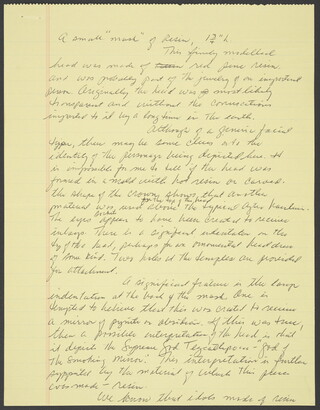 A small "mask" of Resin, 1¾" h.
This finely modelled
head was made of red pine resin
and was probably part of the jewelry of an important
person. Originally the head was most likely
transparent and without the encrustations
imparted to it by a long time in the earth.
Although of a generic facial
type, there may be some clues as to the
identity of the personage being depicted here. It
is impossible for me to tell if the head was
formed in a mold with hot resin or carved.
the shape of the crown shows that another
material was used above the typical Aztec hairline
for the top of the head
The eyes appear to have been created to receive
inlays. There is a significant indentation on the
top of the head, perhaps for an ornamental headdress
of some kind. Two holes at the temples are provided
for attachment.
A significant feature is the large
indentation at the back of the mask. One is
tempted to believe that this was created to receive
a mirror of pyrite or obsidian. If this was true,
then a possible interpretation of the head is that
it depicts the supreme God Tezcatlipoca - God of
the Smoking Mirror. This interpretation is further
supported by the material of which this piece
was made - resin.
We know that idols made of resin